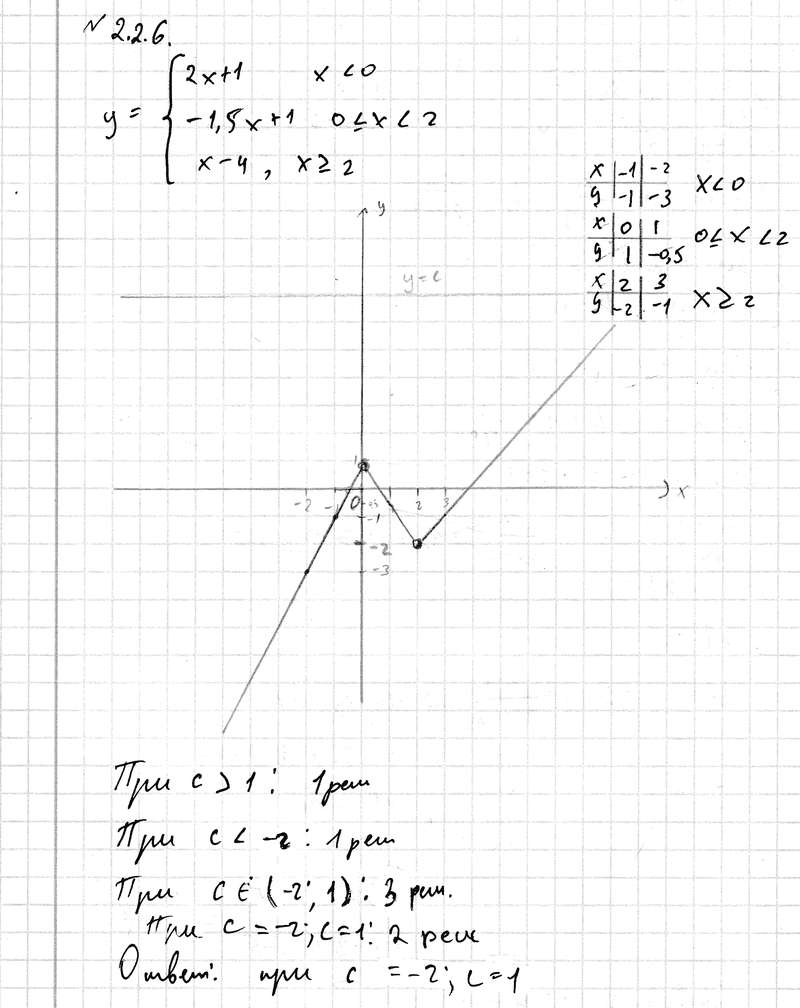 N 2.2.6.
y = { 2x+1 x < 0
-1,5x+1 0 ≤ x < 2
x-4, x ≥ 2
x | -1 | -2
y | -1 | -3 x < 0
x | 0 | 1
y | 1 | -0,5 0 ≤ x < 2
x | 2 | 3
y | -2 | -1 x ≥ 2
y
y = c
1
-2 -1 0 2 3 x
-1
-2
-3
При c > 1: 1 реш
При c < -2: 1 реш
При c ∈ (-2; 1): 3 реш.
При c = -2; c = 1: 2 реш
Ответ: при c = -2; c = 1